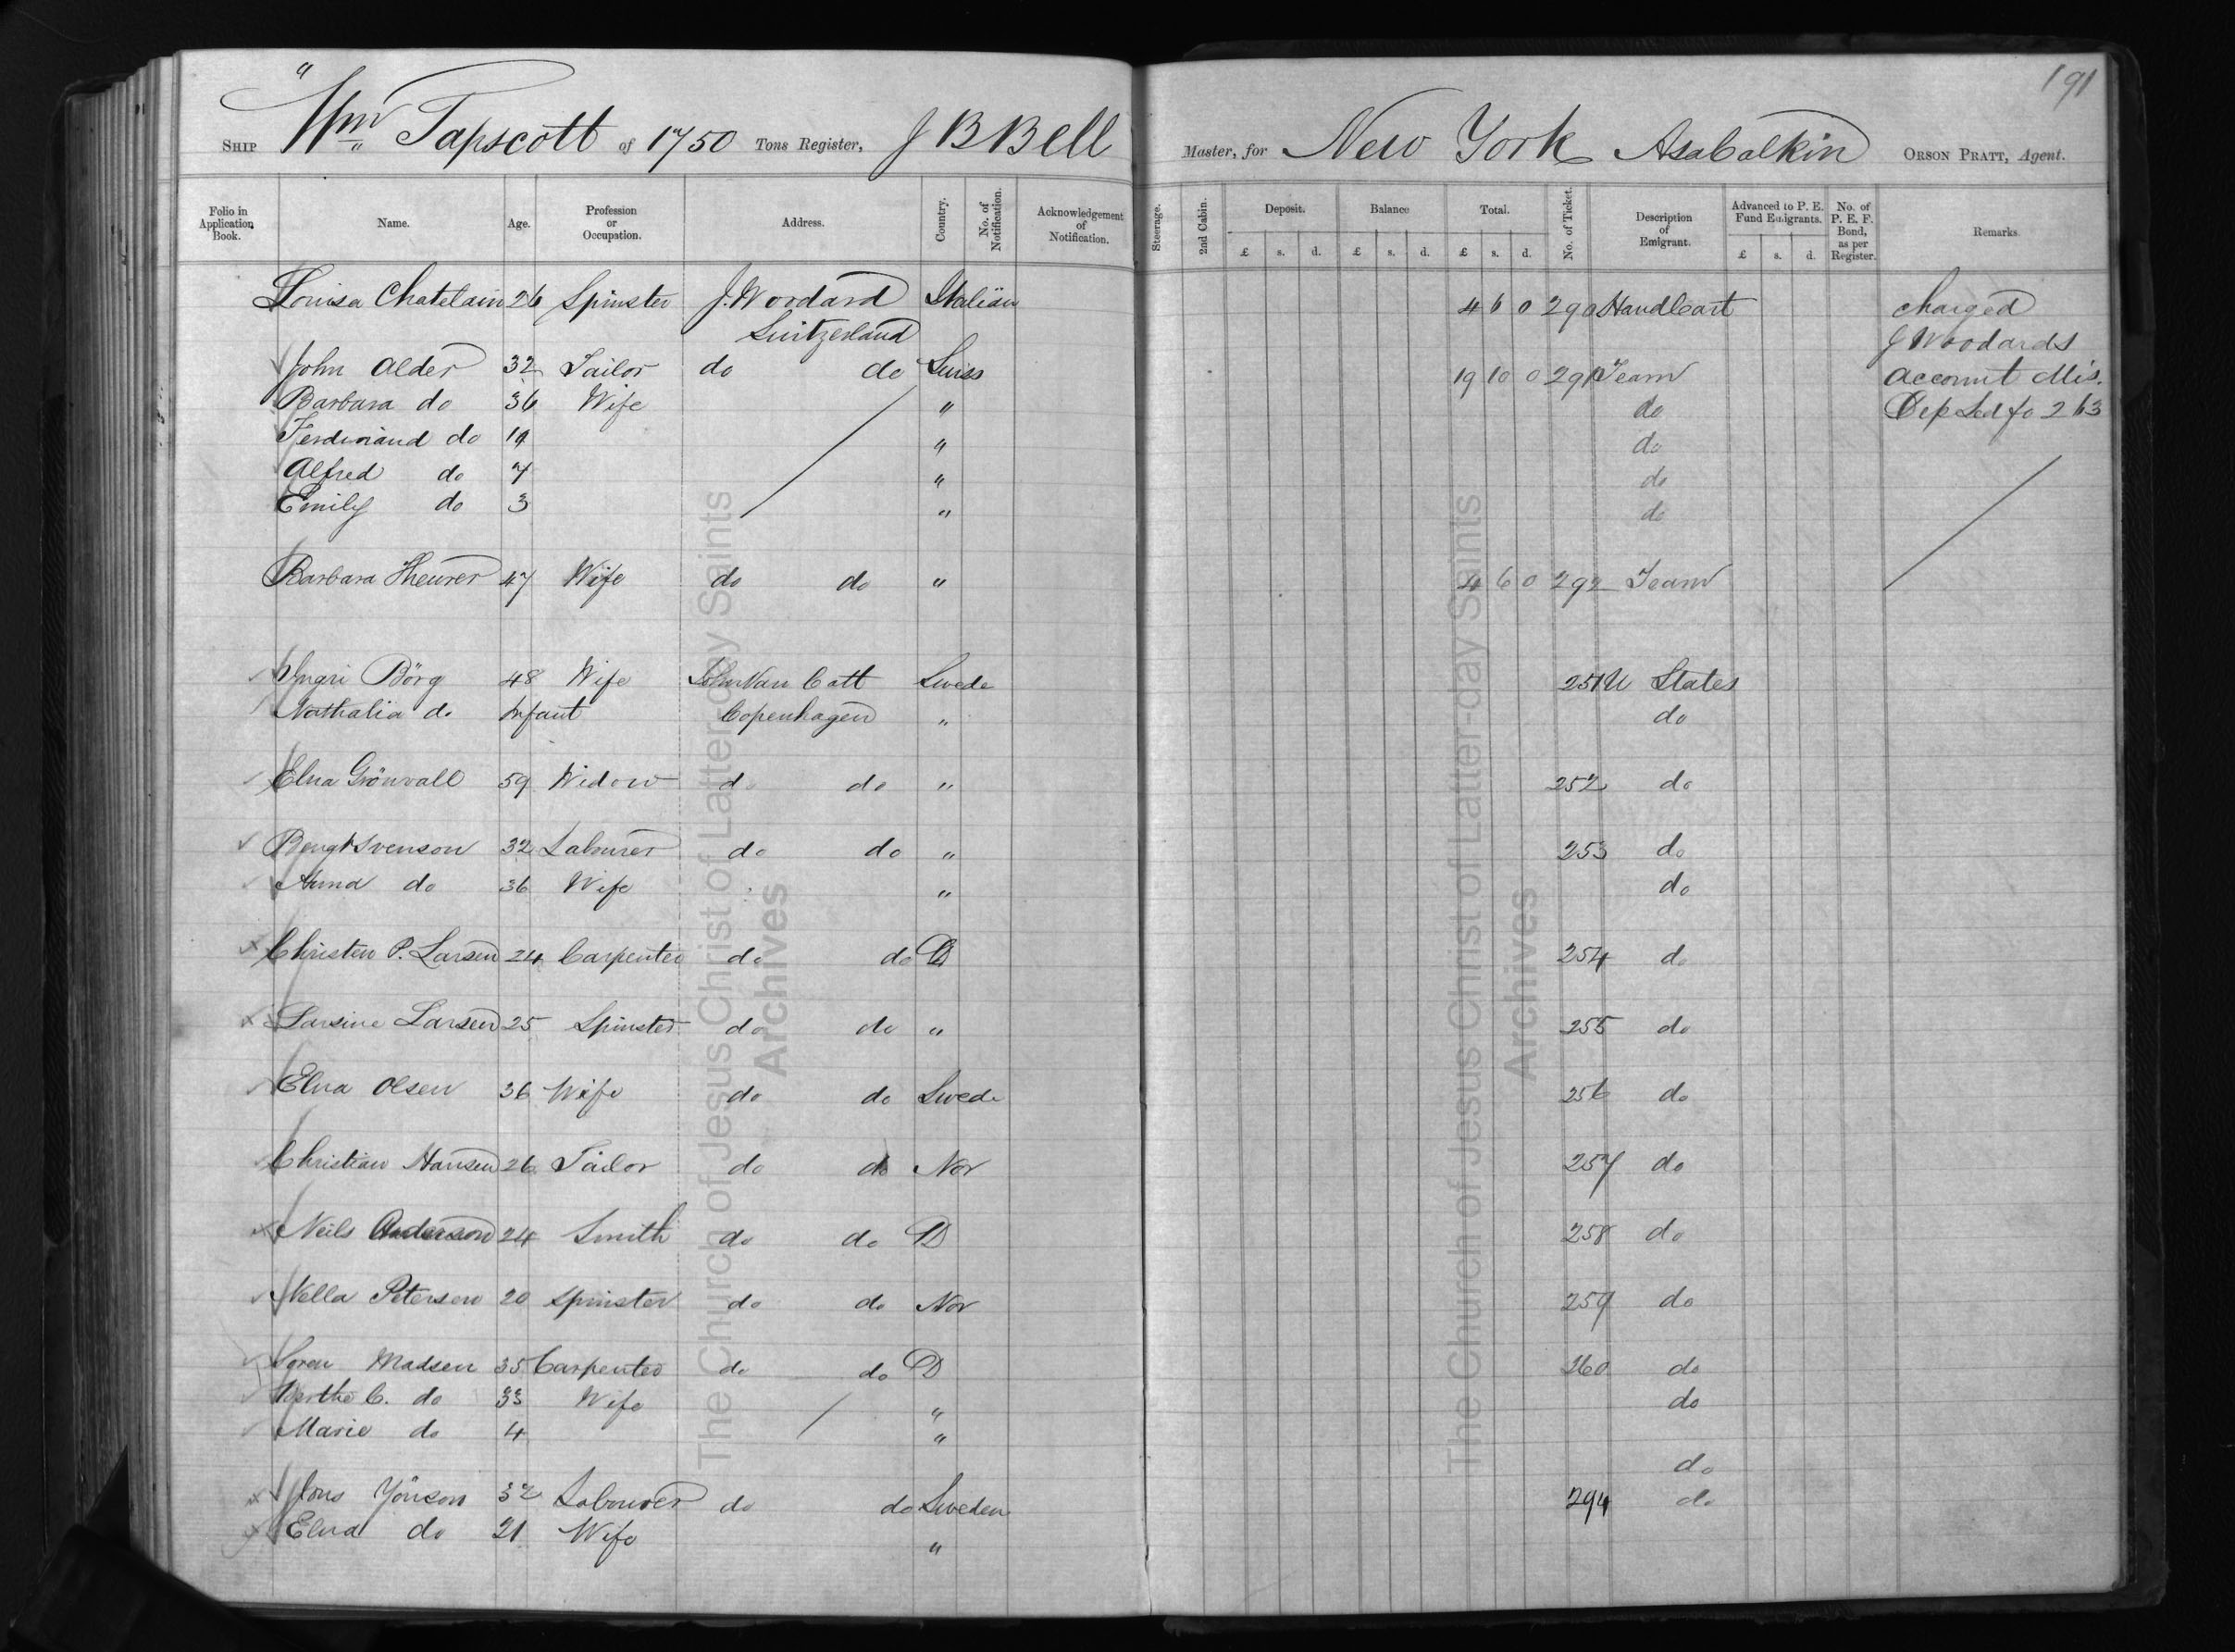 191
SHIP "Wm Tapscott of 1750 Tons Register, J B Bell Master, for New York Asa Calkin ORSON PRATT, Agent.
Folio in Application Book. Name. Age. Profession or Occupation. Address. Country. No. of Notification. Acknowledgement of Notification. Steerage. 2nd Cabin. Deposit. Balance Total. No. of Ticket. Description of Emigrant. Advanced to P. E. Fund Emigrants. No. of P. E. F. Bond, as per Register. Remarks.
£ s. d. £ s. d. £ s. d. £ s. d.
Louisa Chatelain 26 Spinster J. Woodard Italian 4 6 0 290 Hand Cart charged
Switzerland J Woodards
John Alder 32 Tailor do do Swiss 19 10 0 291 Team account Mis.
Barbara do 36 Wife " do Dep Led fo 263
Ferdinand do " do
Alfred do 7 " do
Emily do 3 " do
Barbara Heurer 47 Wife do do " 4 6 0 292 Team
Ingri Börg 48 Wife John Van Cott Swede 251 U States
Nathalia do Infant Copenhagen " do
Elna Grönvall 59 Widow do do " 252 do
Bengt Svenson 32 Labourer do do " 253 do
Anna do 36 Wife " do
Christen P. Larsen 24 Carpenter do do D 254 do
Larsine Larsen 25 Spinster do do " 255 do
Elna Olsen 36 Wife do do Swede 256 do
Christian Hansen 26 Tailor do do Nor 257 do
Neils Anderson 24 Smith do do D 258 do
Nella Petersen 20 Spinster do do Nor 259 do
Soren Madsen 35 Carpenter do do D 260 do
Berthe C. do 33 Wife " do
Marie do 4 "
do
Jons Yönson 32 Labourer do do Sweden 294 do
Elna do 21 Wife "
The Church of Jesus Christ of Latter-day Saints
Archives
The Church of Jesus Christ of Latter-day Saints
Archives